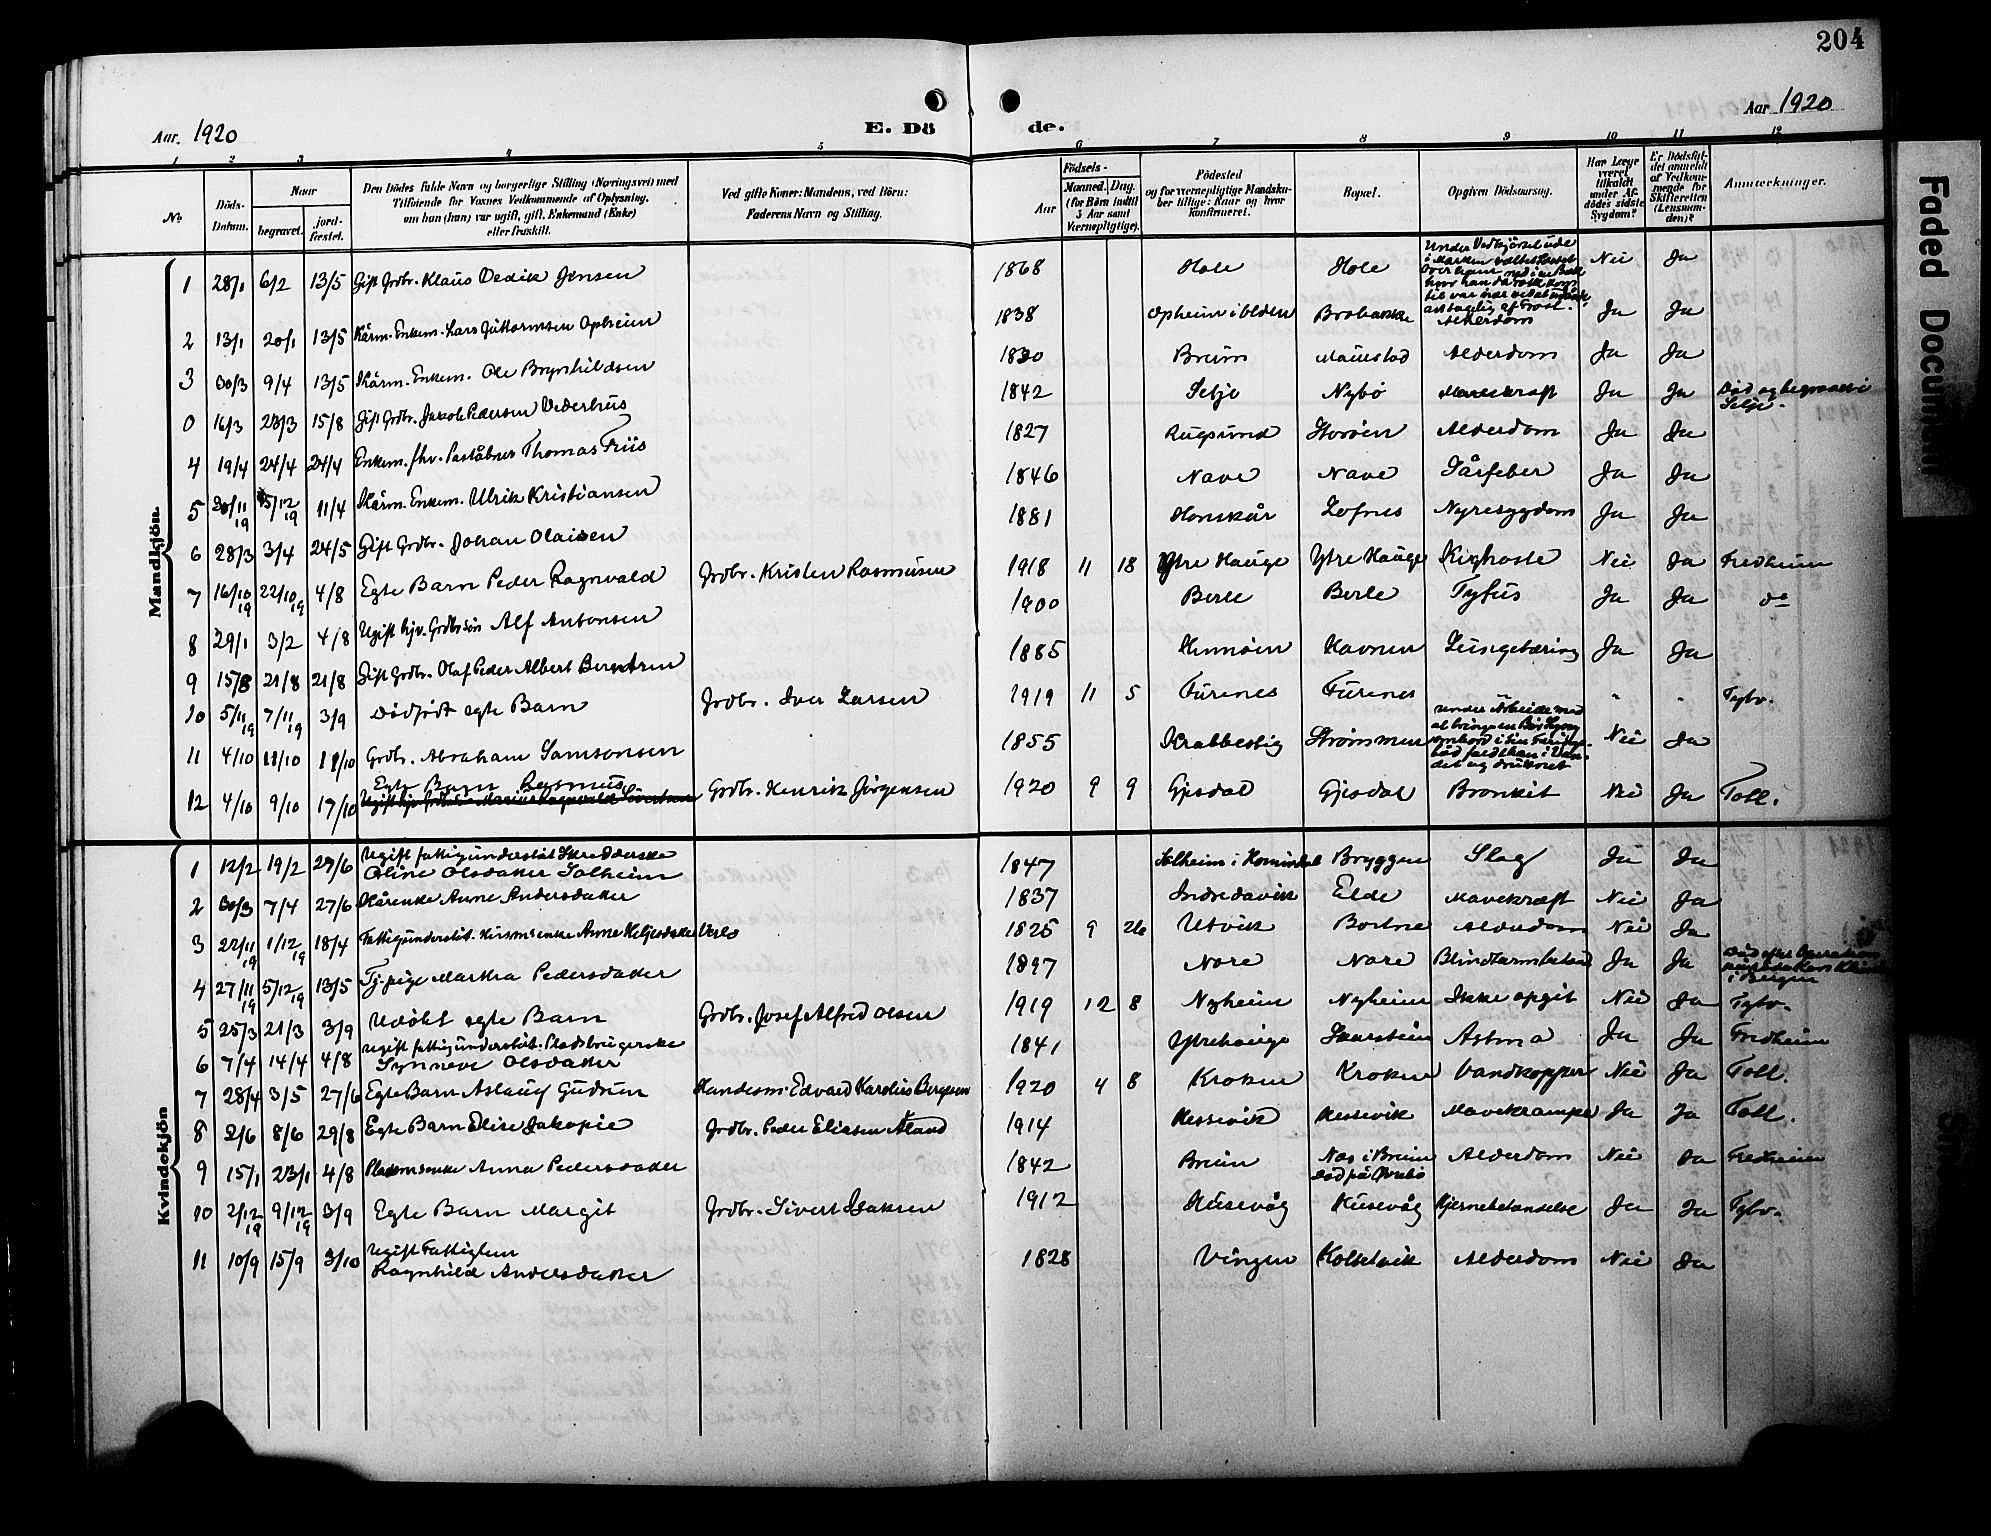 204
Aar 1920
E. Dö
de.
Aar 1920
1 2 3 4 5 6 7 8 9 10 11 12
No
Döds-Datum.
Naar
begravet.
jord-fæstet.
Den Dödes fulde Navn og borgerlige Stilling (Næringsvei) med
Tilföiende for Voxnes Vedkommende af Oplysning,
om han (hun) var ugift, gift, Enkemand (Enke)
eller fraskilt.
Ved gifte Koner: Mandens, ved Börn:
Faderens Navn og Stilling.
Födsels-
Aar
Maaned. Dag.
(for Börn indtil
5 Aar samt
Værnepligtige).
Födested
og for værnepligtige Mandska-
ber tillige: Naar og hvor
konfirmeret.
Bopæl.
Opgiven Dödsaarsag.
Har Læge
været
tilkaldt
under Af-
dödes sidste
Sygdom?
Er Dödsfal-
det anmeldt
af Vedkom-
mende for
Skifteretten
(Lensman-
den)?
Anmærkninger.
Mandkjön.
1 28/1 6/2 13/5 Gift Grdbr. Klaus Vedik Jensen 1868 Hole Hole Under Vedkjörsel ude i Marken væltet Lasset over hjem Nei Ja
2 13/1 20/1 13/5 Kårm. Enkem. Lars Guttormsen Opheim 1838 Opheim i Olden Alderdom Ja Ja
3 30/3 9/4 13/5 Kårm. Enkem. Ole Brynhildsen 1830 Breim Maurstad Alderdom Ja Ja
0 16/3 23/3 15/8 Gift Grdbr. Jakob Pedersen Vederhus 1842 Selje Nybö Mavekræft Ja Ja Död og begravet i Selje.
4 19/4 24/4 24/4 Enkem. fhv. Poståbner Thomas Friis 1827 Rugsund Alderdom Ja Ja
5 20/11 19 5/12 19 11/4 Kårm. Enkem. Ulrik Kristiansen 1846 Nave Nave Sårfeber Ja Ja
6 28/3 3/4 24/5 Gift Grdbr. Johan Olaisen 1881 Honskår Lofnes Nyresygdom Ja Ja
7 16/10 19 22/10 19 4/8 Egte Barn Peder Ragnvald Grdbr. Kristen Rasmusen 1918 11 18 Ytre Hauge Ytre Hauge Kighoste Nei Ja Fredheim
8 29/1 3/2 4/8 Ugift hjv. Grdbr.sön Alf Antonsen 1900 Berle Berle Tyfus Ja Ja do
9 15/8 21/8 21/8 Gift Grdbr. Olaf Peder Albert Berntsen 1885 Hennöen Havnen Lungetæring Ja Ja
10 5/11 19 7/11 19 3/9 Dödfödt egte Barn Grdbr. Iver Larsen 1919 11 5 Furenes Furenes " " Tytv.
11 4/10 11/10 18/10 Grdbr. Abraham Samsonsen 1855 Krabbestig Strömmen under Arbeide med at bringe ombord i sin faldt han i Van- det og druknet Nei Ja
12 4/10 9/10 17/10 Egte Barn Rasmus Grdbr. Henrik Jörgensen 1920 9 9 Gjesdal Gjesdal Bronkit Nei Ja Totl.
Kvindekjön
1 12/2 19/2 27/6 Ugift fattigunderstöt Skredderske
Oline Olsdatter Solheim 1847 Solheim i Bryggen Slag Ja Ja
2 30/3 7/4 27/6 Kårenke Anne Andersdatter 1837 Indre davik Elde Mavekræft Nei Ja
3 22/11 19 1/12 19 18/4 Fattigunderstöt. Husm.senke Anne Helgesdatter 1825 9 26 Utvik Bortne Alderdom Nei Ja
4 27/11 19 5/12 19 13/5 Tj. pige Martha Pedersdatter 1897 Nore Nore Blindtarmbetænd Ja Ja Död efter Operation i Bergen
5 25/3 21/3 3/9 Udöbt egte Barn Grdbr. Josef Alfred Olsen 1919 12 8 Nyheim Nyheim Ikke opgit Nei Ja Tytv.
6 7/4 14/4 4/8 Ugift fattigunderstöt. Pladsbrugerske
Synneve Olsdatter 1841 Ytrehauge Skarstein Astma Ja Ja Fredheim
7 28/4 3/5 27/6 Egte Barn Aslaug Gudrun Handesm. Edvard Karelius Bergesen 1920 4 8 Kroken Kroken Vandkopper Nei Ja Totl.
8 2/6 8/6 29/8 Egte Barn Elise Jakopie Grdbr. Peder Eliasen Aland 1914 Hessevik Hessevik Mavekrampe Ja Ja Totl.
9 15/1 23/1 4/8 Pladsm.senke Anna Pedersdatter 1842 Breim Nos i Breim
död på Alderdom Nei Ja Fredheim
10 2/12 19 9/12 19 3/9 Egte Barn Margit Grdbr. Sivert Isaksen 1912 Husevåg Husevåg Hjernebetændelse Ja Ja Tytv.
11 10/9 15/9 3/10 Ugift Fattiglem
Ragnhild Andersdatter 1828 Vingen Kolsetvik Alderdom Nei Ja
Faded Document